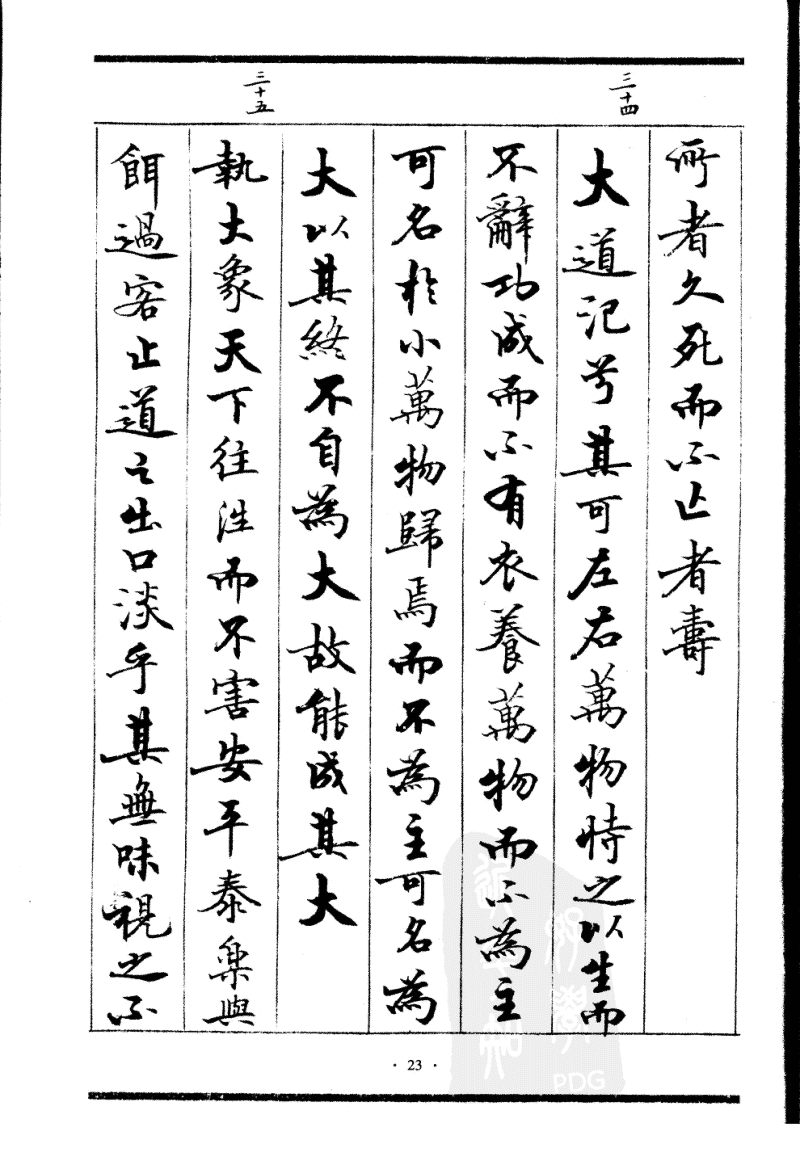 三十四
三十五
所者久死而不亡者壽
大道汜兮其可左右萬物恃之以生而
不辭功成而不有衣養萬物而不為主
可名於小萬物歸焉而不為主可名為
大以其終不自為大故能成其大
執大象天下往往而不害安平泰樂與
餌過客止道之出口淡乎其無味視之不
· 23 ·
PDG